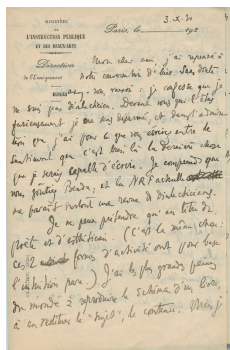 MINISTÈRE
DE
L'INSTRUCTION PUBLIQUE
ET DES BEAUX-ARTS
Direction
de l'Enseignement
BUREAU
Paris, le 3.X.30 192
Mon cher ami, j'ai repensé à
notre conversation d'hier. Sans doute
avez-vous raison : je confesse que je
ne suis pas dialecticien. Devant vous qui l'êtes
furieusement je me sens désarmé, et dans l'admira-
tion que j'ai pour ce que vous écrivez entre le
sentiment que c'est bien là la dernière chose
que je serais capable d'écrire. Je comprends que
vous goûtiez Benda, et la NRF actuelle
me paraît surtout une revue de dialecticiens.
Je ne peux prétendre qu'au titre de
poète et d'esthéticien. (C'est la même chose :
ces 2 formes d'activité ont pour base
l'intuition pure.) J'ai les plus grandes peines
du monde à reproduire le schéma d'un livre,
à en restituer le "sujet", le contenu. Mais je